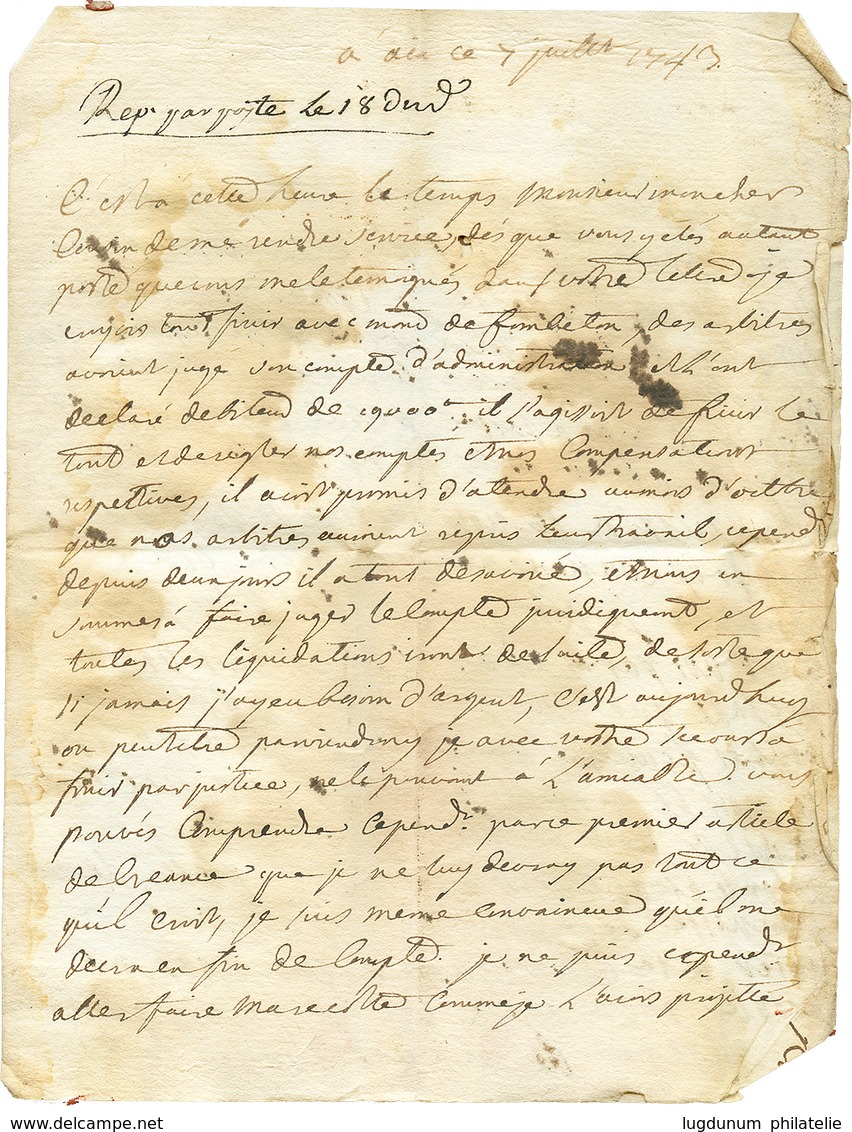 a aix ce 7 juillet 1743.
Rep. par poste le 18 dud
C'est a cette heure le temps Monsieur mon cher
Cousin de me rendre service, dés que vous y etés autant
porté que vous me le temoignés dans votre lettre je
croyois tout finir avec mond de fombeton, des arbitres
avoient jugé son compte d'administration et l'ont
declaré debiteur de il s'agissoit de finir le
tout et de regler nos comptes et nos Compensations
respectives, il avoit promis d'atendre au mois d'octbre
que nos arbitres auroient repris leur travail, cepend
depuis deux jours il a tout desavoué, et nous en
sommes a faire juger le Compte juridiquemt, et
toutes les liquidations iront de suite, de sorte que
si jamais j'ay eu besoin d'argent, c'est aujourdhuy
ou peut etre parviendray je avec votre secours a
finir par justice, ne le pouvant a L'amiable. vous
pouvés Comprendre Cepend.t par ce premier article
de Creance que je ne luy devray pas tout ce
qu'il croit, je suis meme convaincue qu'il me
devra en fin de Compte. je ne puis cepend.t
aller faire ma recolte Comme je L'avois projetté
lugdunum philatelie
www.delcampe.net